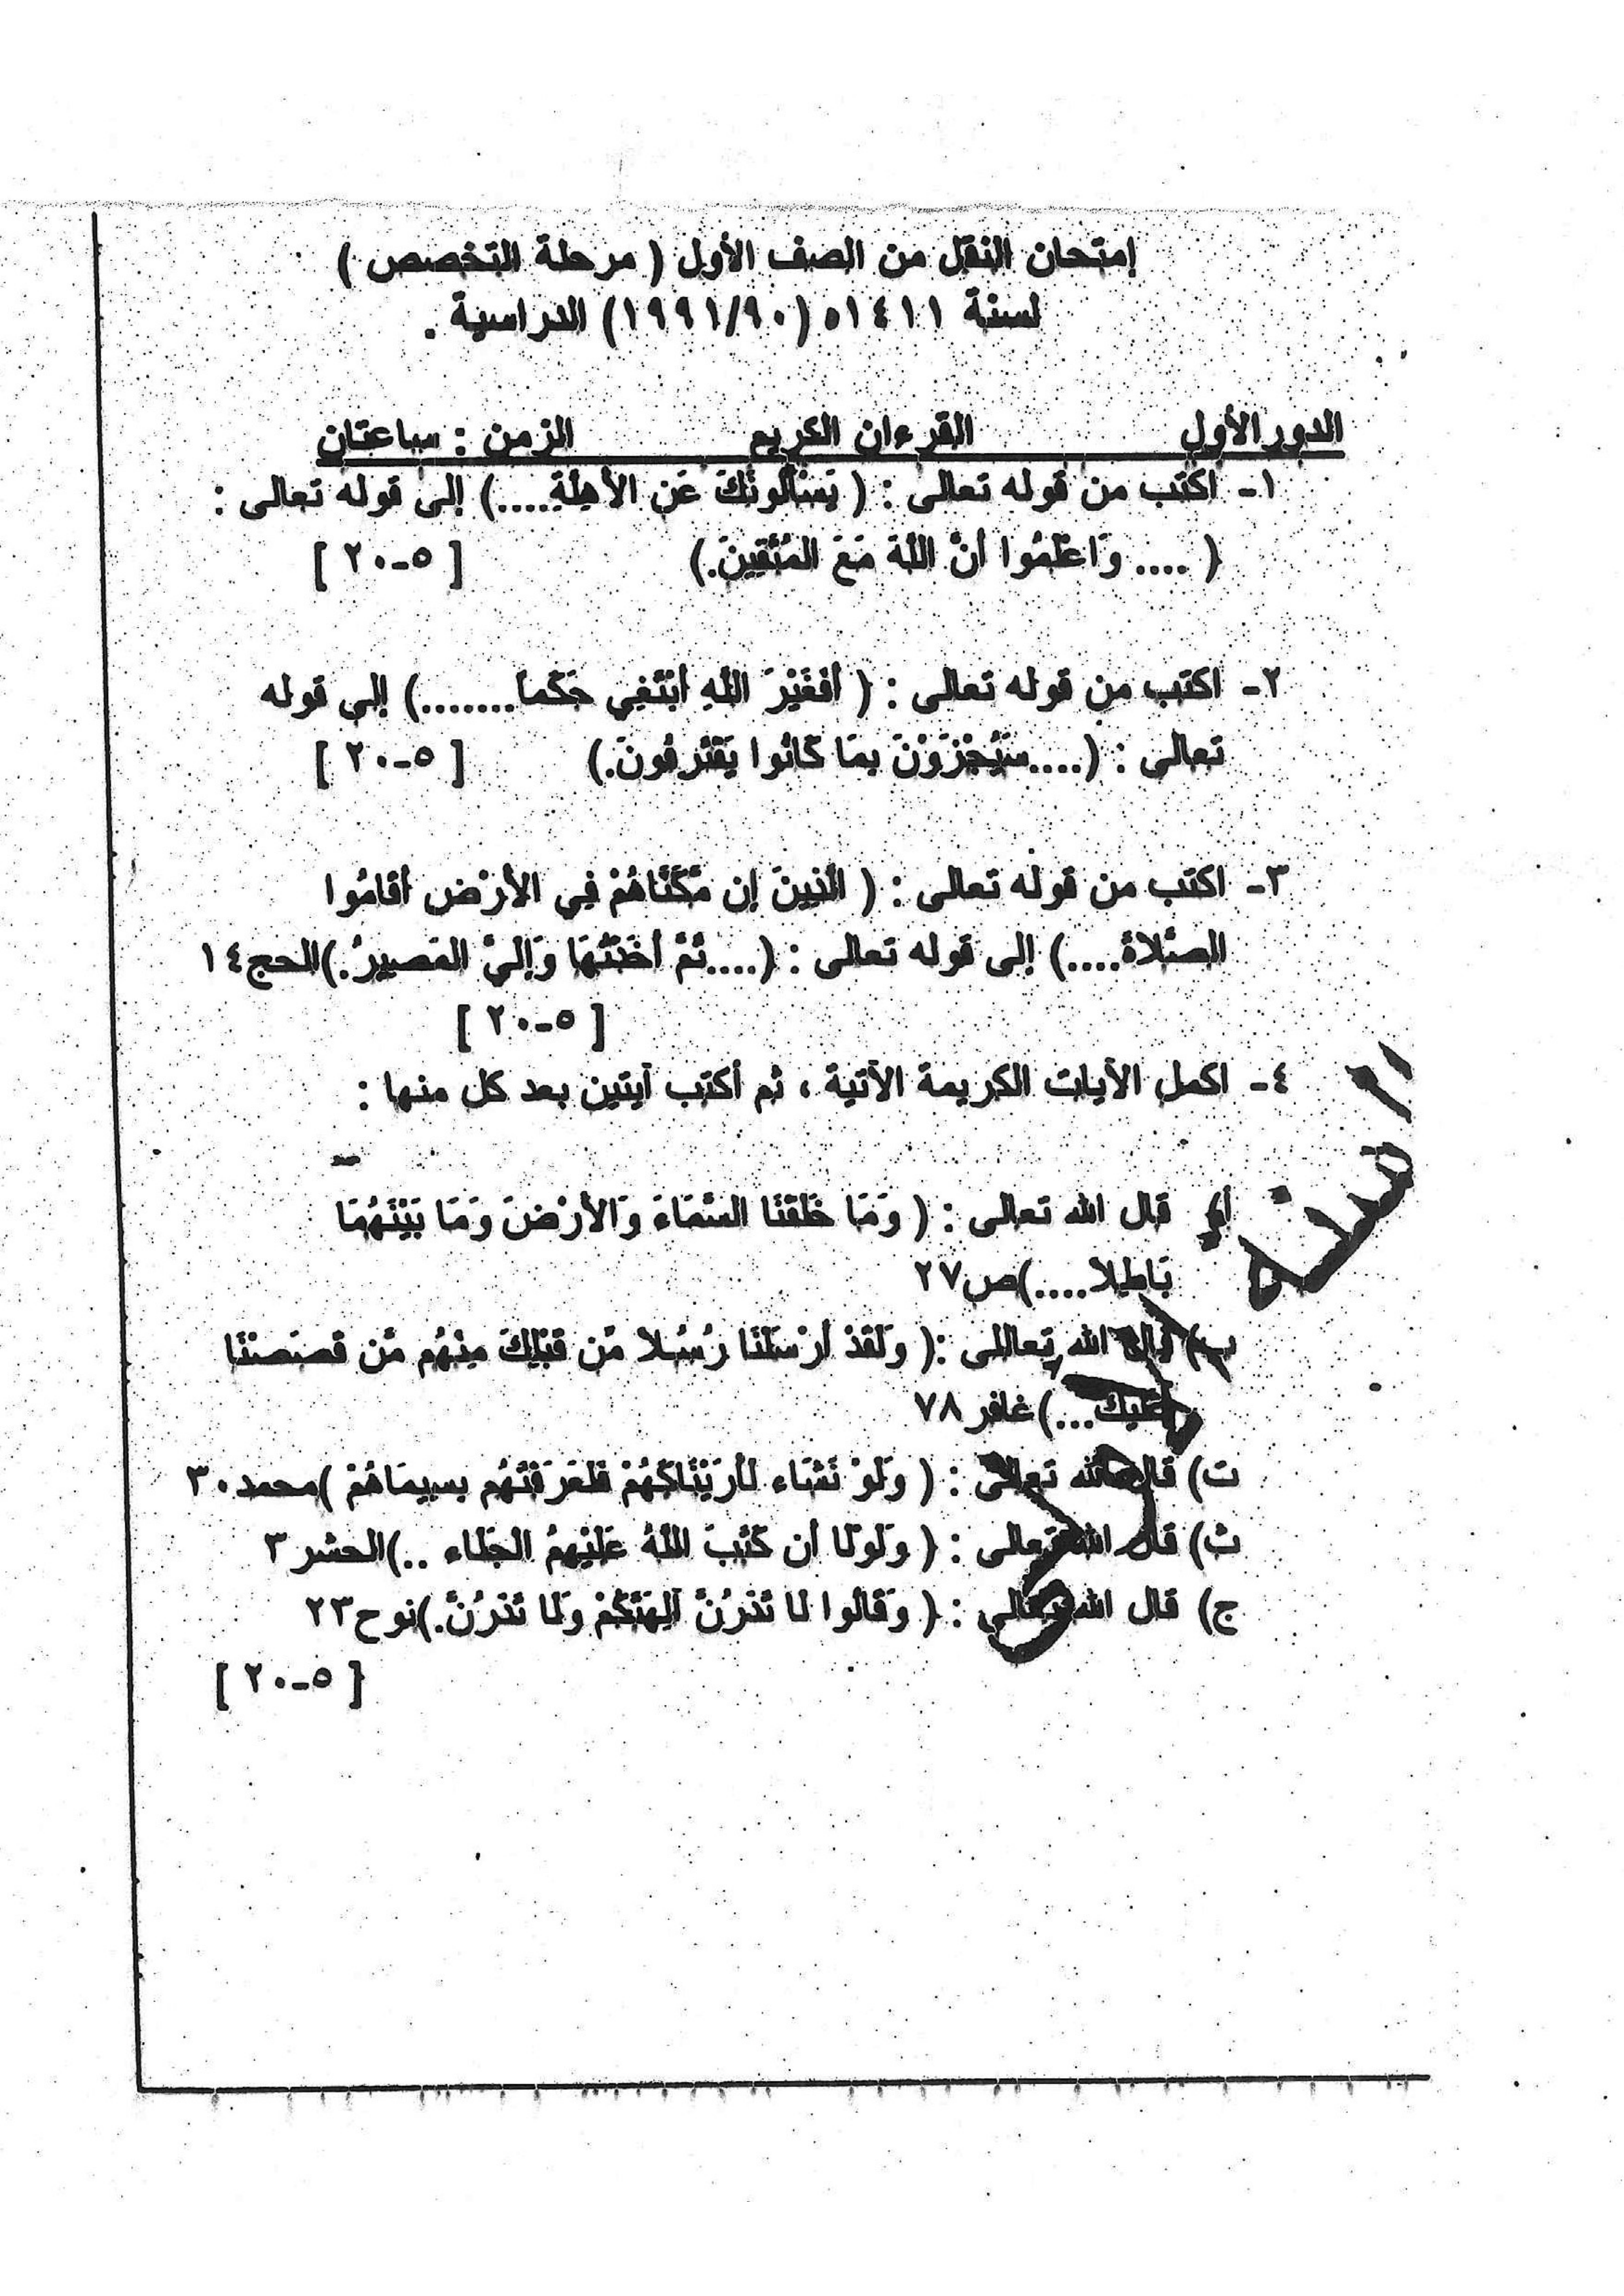 إمتحان النقل من الصف الأول ( مرحلة التخصص )
لسنة ١٤١١ه (١٩٩١/٩٠) الدراسية .
الدور الأول القرءان الكريم الزمن : ساعتان
١- اكتب من قوله تعالى : ( يَسْأَلُونَكَ عَنِ الأَهِلَّةِ.....) إلى قوله تعالى :
( .... وَاعْلَمُوا أَنَّ اللَّهَ مَعَ المُتَّقِينَ.) [ ٥-٢٠ ]
٢- اكتب من قوله تعالى : ( أَفَغَيْرَ اللَّهِ أَبْتَغِي حَكَماً........) إلى قوله
تعالى : (....سَيُجْزَوْنَ بِمَا كَانُوا يَقْتَرِفُونَ.) [ ٥-٢٠ ]
٣- اكتب من قوله تعالى : ( الَّذِينَ إِن مَّكَّنَّاهُمْ فِي الأَرْضِ أَقَامُوا
الصَّلاةَ....) إلى قوله تعالى : (....ثُمَّ أَخَذْتُهَا وَإِلَيَّ المَصِيرُ.)الحج١٤
[ ٥-٢٠ ]
٤- اكمل الآيات الكريمة الآتية ، ثم أكتب آيتين بعد كل منها :
أ) قال الله تعالى : ( وَمَا خَلَقْنَا السَّمَاءَ وَالأَرْضَ وَمَا بَيْنَهُمَا
بَاطِلا....)ص٢٧
ب) قال الله تعاللى :( وَلَقَدْ أَرْسَلْنَا رُسُلا مِّن قَبْلِكَ مِنْهُم مَّن قَصَصْنَا
عَلَيْكَ...)غافر٧٨
ت) قال الله تعالى : ( وَلَوْ نَشَاء لأَرَيْنَاكَهُمْ فَلَعَرَفْتَهُم بِسِيمَاهُمْ )محمد٣٠
ث) قال الله تعالى : ( وَلَوْلَا أَن كَتَبَ اللَّهُ عَلَيْهِمُ الْجَلَاء ..)الحشر٣
ج) قال الله تعالى : ( وَقَالُوا لَا تَذَرُنَّ آلِهَتَكُمْ وَلَا تَذَرُنَّ.)نوح٢٣
[ ٥-٢٠ ]